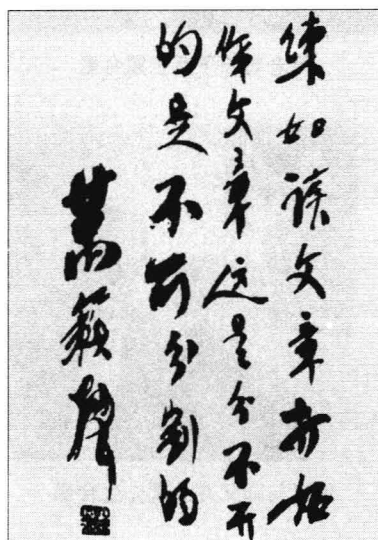 練如读文章打如
作文章这是分不开
的是不可分割的
萬籟聲